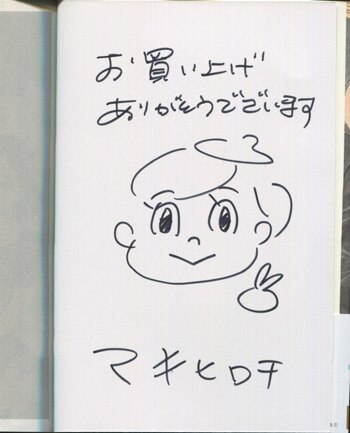 お買い上げ
ありがとうでございます
マキヒロチ